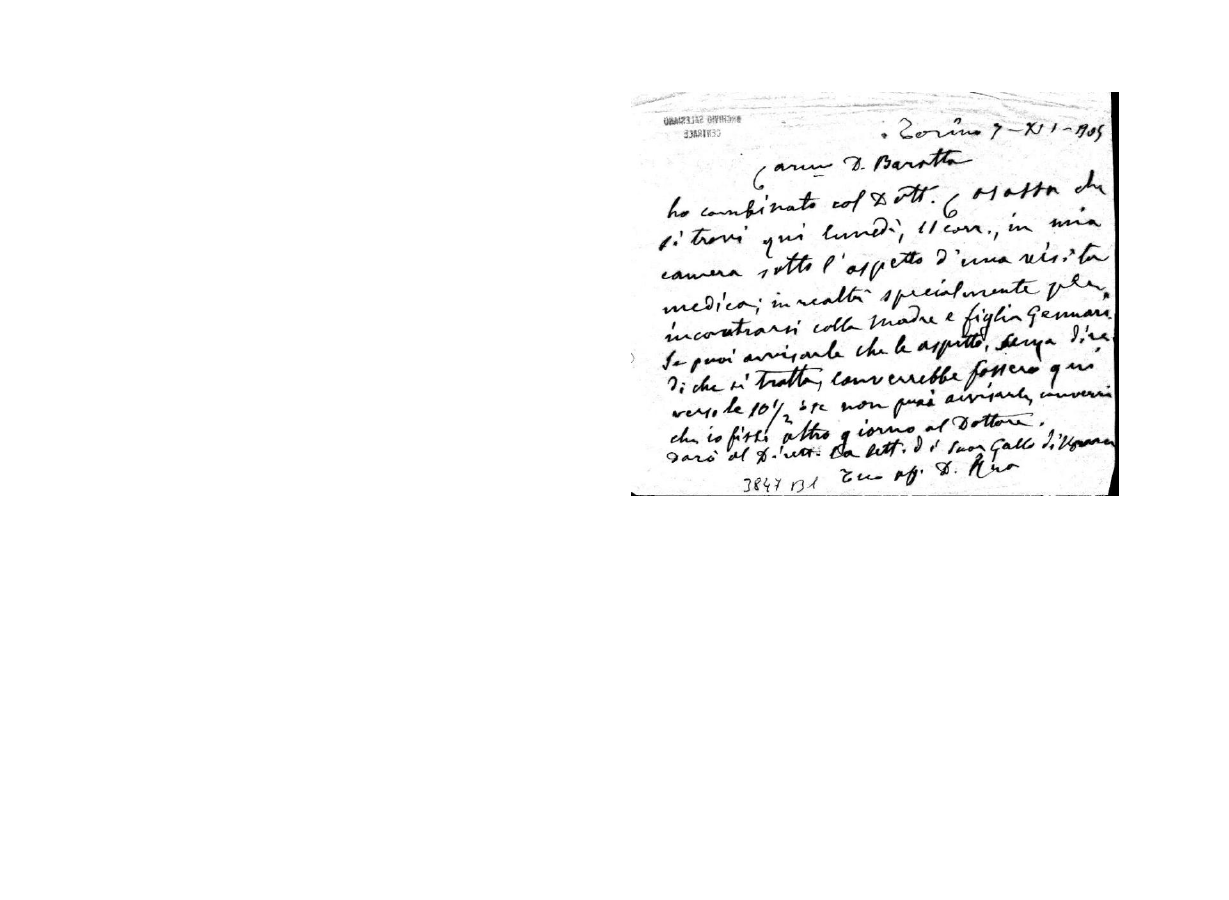 ARCHIVIO SALESIANO
CENTRALE
Torino 7-XII-905
Carmo D. Baratta
ho combinato col Dott. che
si trovi qui lunedì, 11 corr., in mia
camera sotto l'aspetto d'una visita
medica; in realtà specialmente per
incontrarsi colla madre e figlia Gennari.
Se puoi avvisarle che le aspetto, senza dire
di che si tratta, converrebbe fossero qui
verso le 10 1/2 se non puoi avvisarle,
che io fissi altro giorno al Dottore.
Darò al Dirett. la lett. di Suor Gallo di
Tuo aff. D. Rua
3847 B1